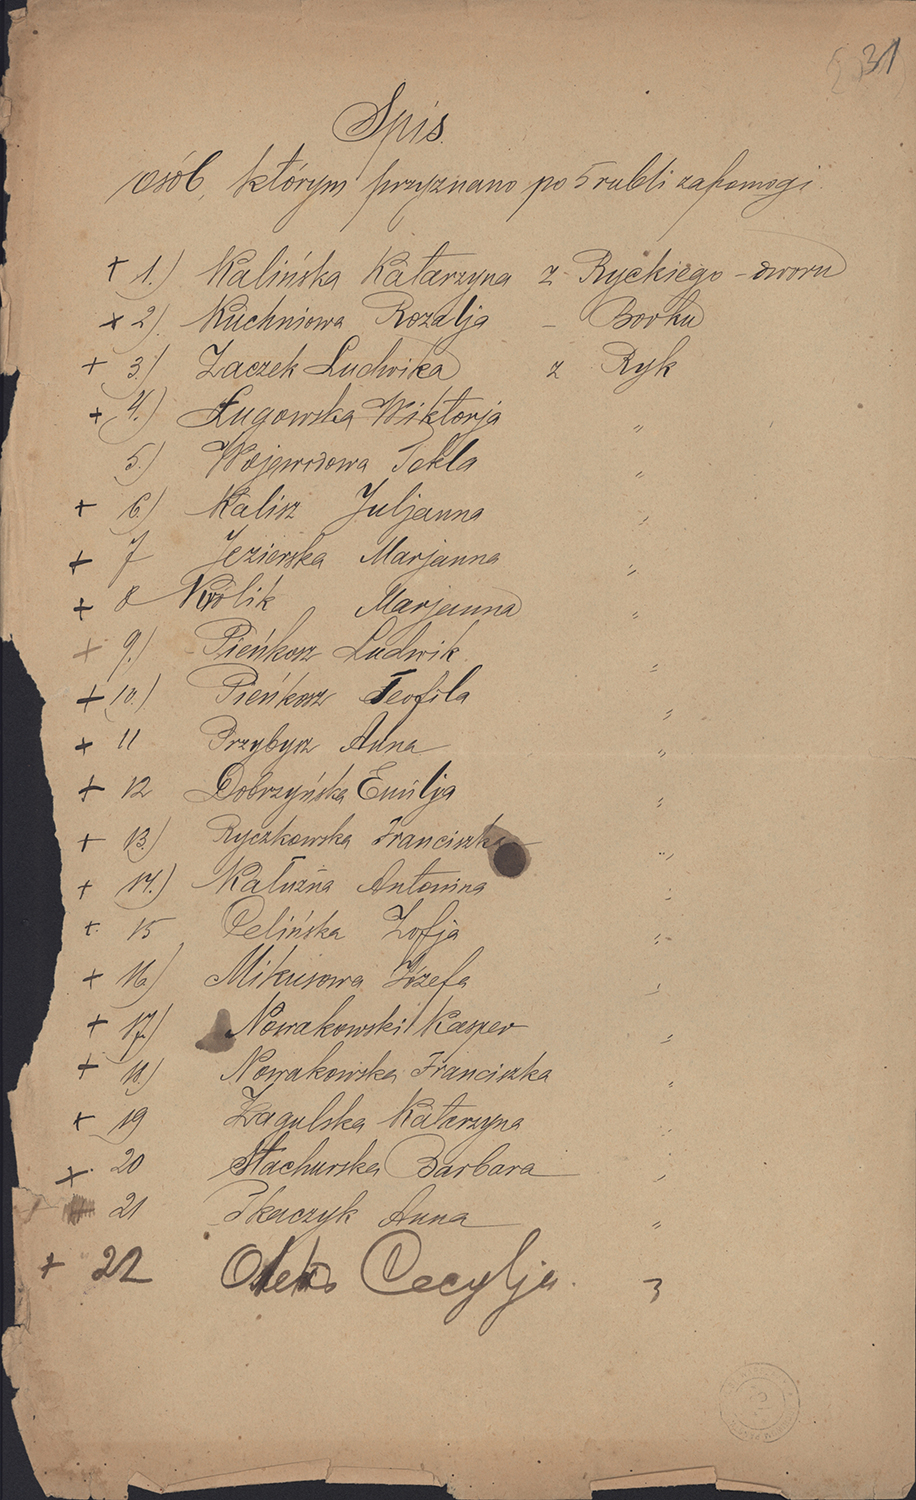 31
Spis.
osób, którym przyznano po 5 rubli zapomogi.
+ 1.) Kalińska Katarzyna z Ryckiego-dworu
+ 2) Kuchniowa Rozalja – Borku
+ 3.) Zaczek Ludwika z Ryk
+ 4.) Ługowska Wiktorja "
5.) Wojewodowa Tekla "
+ 6.) Kalisz Juljanna "
+ 7 Jezierska Marjanna "
+ 8 Królik Marjanna "
+ 9.) Pieńkosz Ludwik. "
+ 10.) Pieńkosz Teofila "
+ 11 Przybysz Anna "
+ 12 Dobrzyńska Emilja "
+ 13.) Ryczkowska Franciszka "
+ 14.) Kałuzna Antonina "
+ 15 Celińska Zofja "
+ 16) Mikusowa Józefa "
+ 17.) Nowakowski Kasper "
+ 18.) Nowakowska Franciszka "
+ 19 Żagulska Katarzyna "
+ 20 Stachurska Barbara "
21 Tkaczyk Anna "
+ 22 Cecylja. "